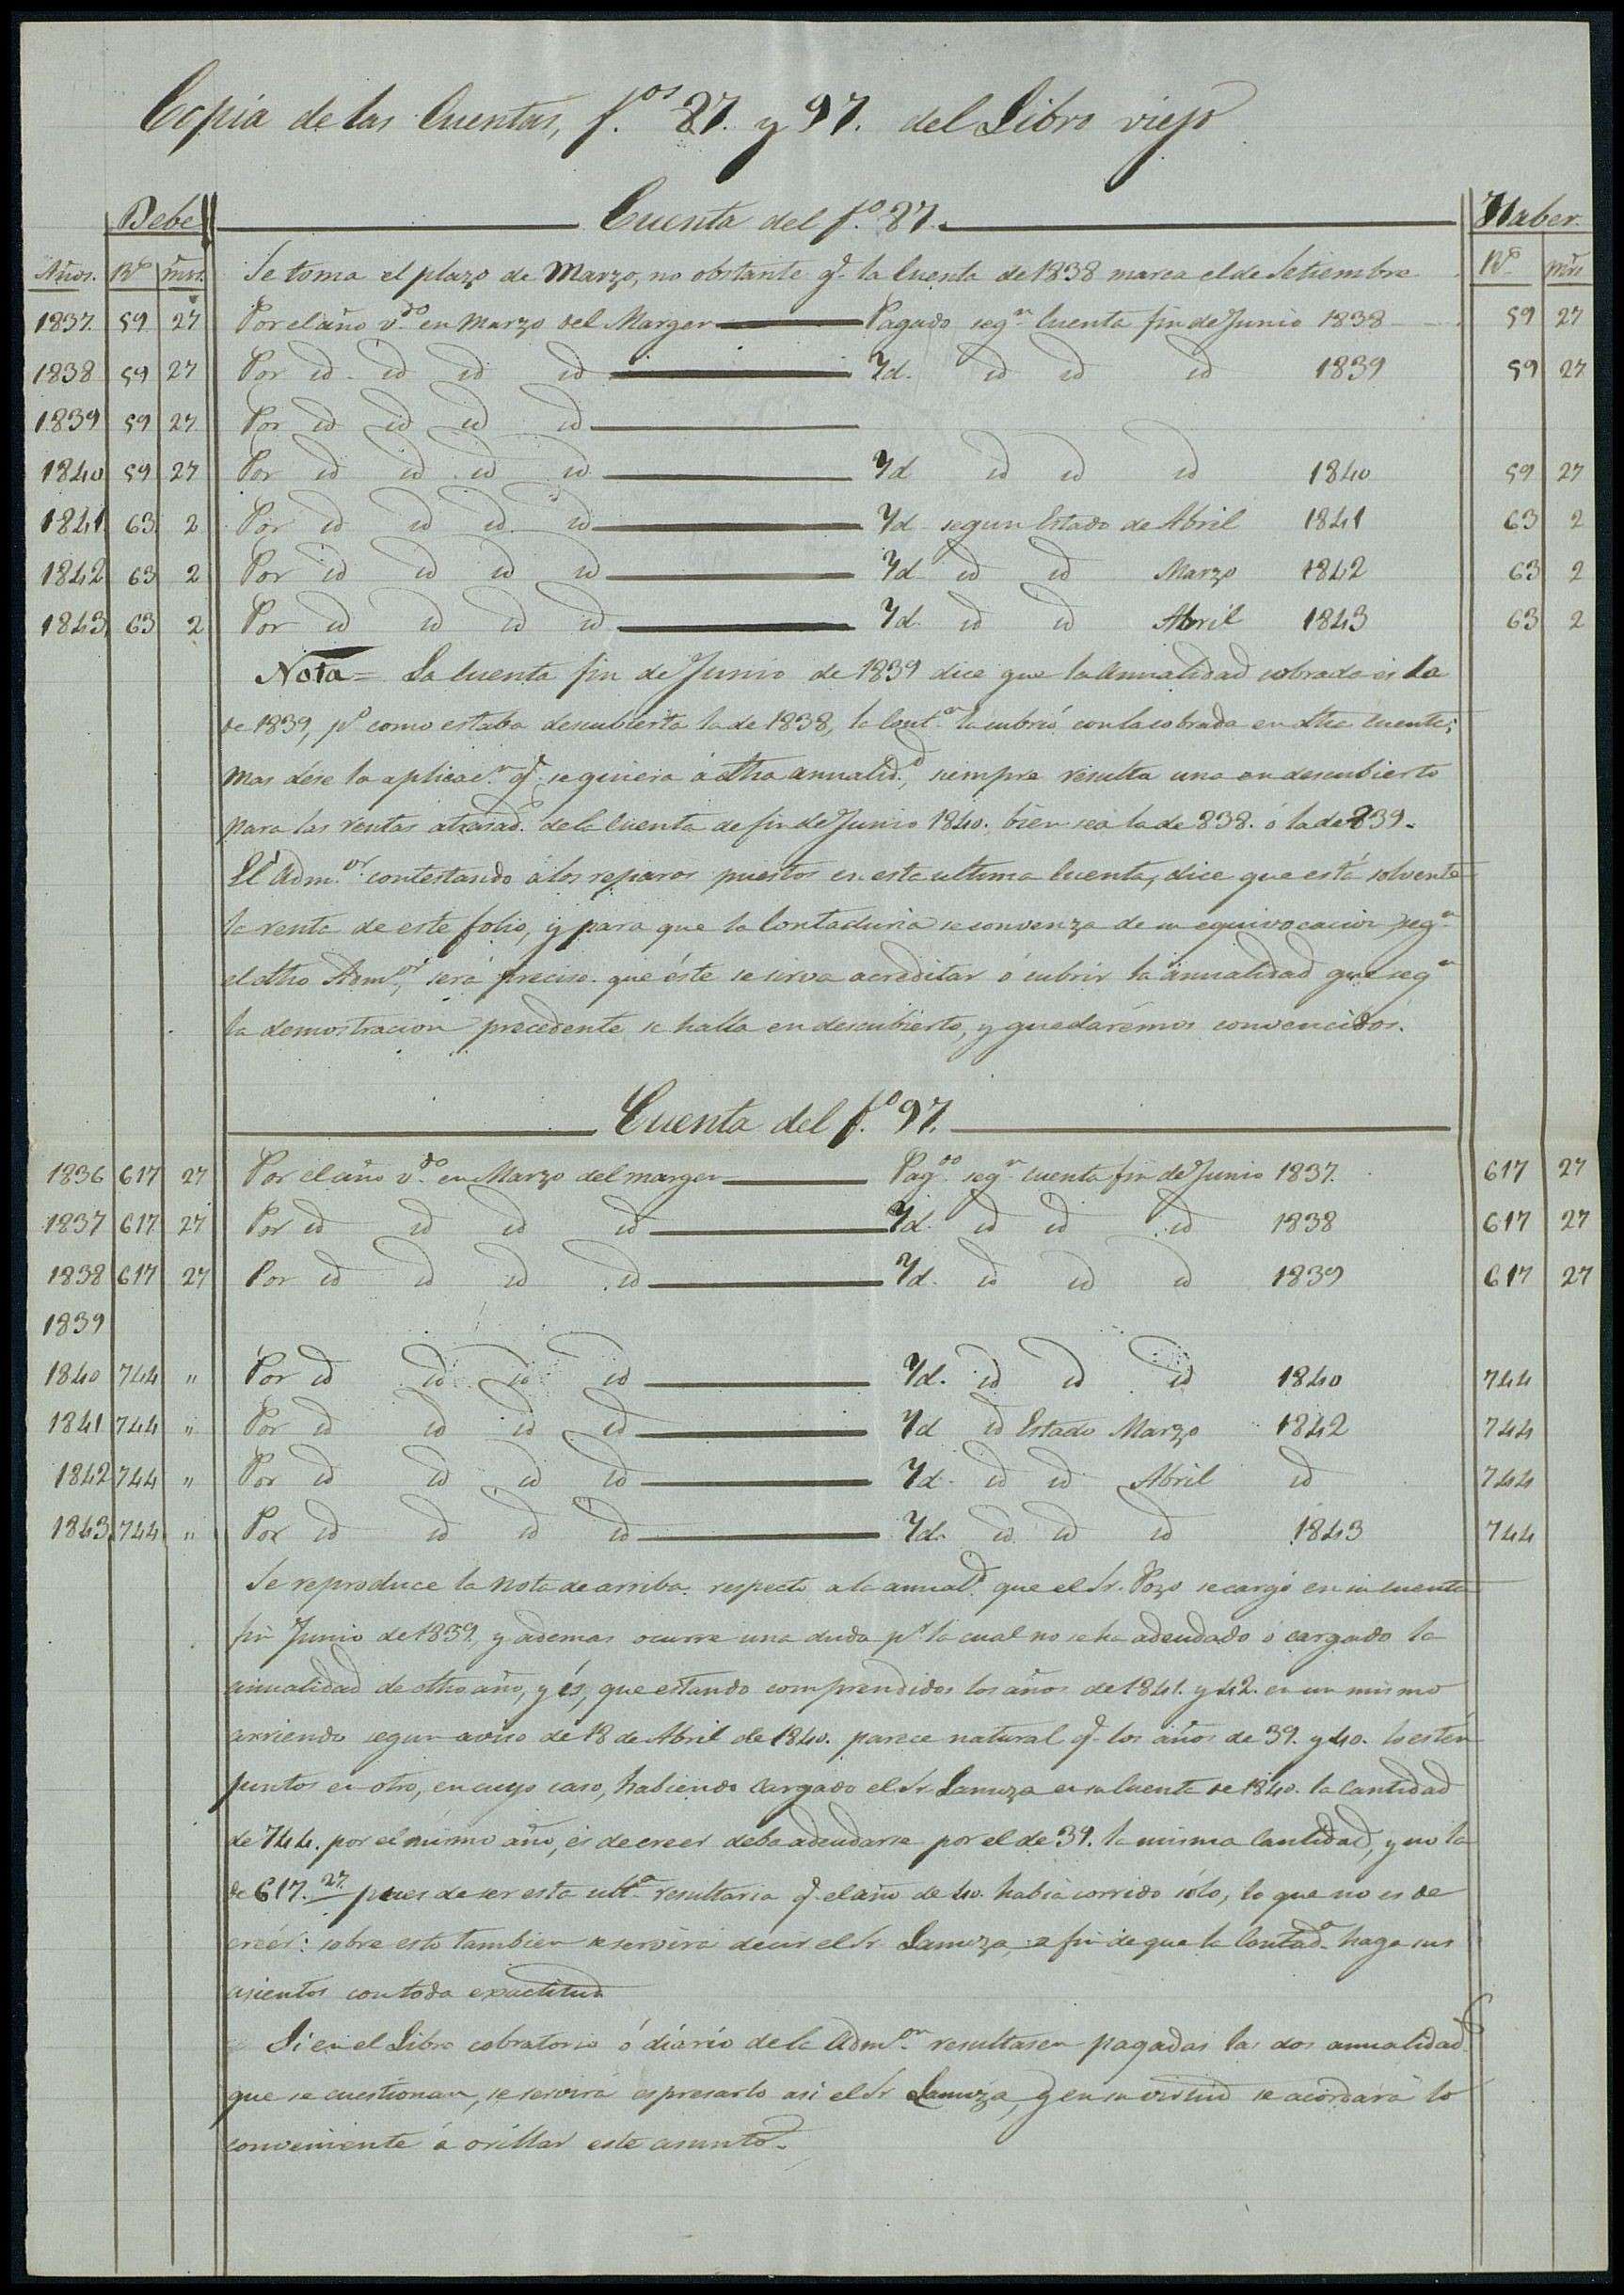 Copia de las Cuentas, f.os 87. y 97. del Libro viejo
Debe Cuenta del f.º 87. Haber.
Años. Rs mrs. Se toma el plazo de Marzo, no obstante q.e la Cuenta de 1838 marca el de Setiembre Rs mrs
1837 59 27 Por el año v.do en Marzo del Margen Pagado seg.n Cuenta fin de Junio 1838 59 27
1838 59 27 Por id id id id Yd. id id id 1839 59 27
1839 59 27 Por id id id id
1840 59 27 Por id id id id Yd id id id 1840 59 27
1841 63 2 Por id id id id Yd segun Estado de Abril 1841 63 2
1842 63 2 Por id id id id Yd id id Marzo 1842 63 2
1843 63 2 Por id id id id Yd. id id Abril 1843 63 2
Nota = La Cuenta fin de Junio de 1839 dice que la Anualidad cobrada es la
de 1839, p.o como estaba descubierta la de 1838, la Cont.a la cubrió con la cobrada en dha cuenta;
mas dese la aplicac.n q.e se quiera á dha anualid.d, siempre resulta una en descubierto
para las rentas atrasad.s de la Cuenta de fin de Junio 1840. bien sea la de 838. ó la de 839.
El Adm.or contestando á los reparos puestos en esta ultima Cuenta, dice que está solvente
la renta de este folio, y para que la Contaduria se convenza de su equivocacion seg.n
el dho Adm.or, será preciso que éste se sirva acreditar ó cubrir la anualidad que seg.n
la demostracion precedente se halla en descubierto, y quedarémos convencidos.
Cuenta del f.º 97.
1836 617 27 Por el año v.do en Marzo del margen Pag.do seg.n cuenta fin de Junio 1837. 617 27
1837 617 27 Por id id id id Yd. id id id 1838 617 27
1838 617 27 Por id id id id Yd. id id id 1839 617 27
1839
1840 744 " Por id id id id Yd. id id id 1840 744
1841 744 " Por id id id id Yd id Estado Marzo 1842 744
1842 744 " Por id id id id Yd. id id Abril id 744
1843 744 " Por id id id id Yd. id id id 1843 744
Se reproduce la nota de arriba respecto a la anual.d que el Sr. Pozo se cargó en su cuenta
fin Junio de 1839, y ademas ocurre una duda p.r la cual no se ha adeudado ó cargado la
anualidad de dho año, y és, que estando comprendidos los años de 1841. y 42. en un mismo
arriendo segun aviso de 18 de Abril de 1840. parece natural q.e los años de 39. y 40. lo estén
juntos en otro, en cuyo caso, habiendo cargado el Sr Lanuza en su Cuenta de 1840. la Cantidad
de 744. por el mismo año, és de creer deba adeudarse por el de 39. la misma Cantidad, y no la
de 617. 27. pues de ser esta ult.a resultaria q.e el año de 40. habia corrido sólo, lo que no es de
creér: sobre esto tambien se servirá decir el Sr Lanuza, a fin de que la Contad.a haga sus
asientos con toda exactitud
Si en el Libro cobratorio ó diário de la Adm.on resultasen pagadas las dos anualidad.s
que se cuestionan, se servirá espresarlo asi el Sr Lanuza, y en su virtud se acordará lo
conveniente á orillar este asunto.